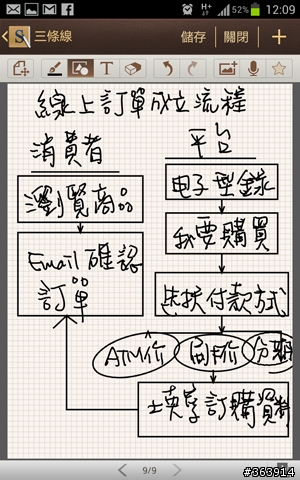 12:09
52%
H+
三條線
儲存
關閉
線上訂單成立流程
消費者
平台
瀏覽商品
电子型錄
Email 確認
訂單
我要購買
選擇付款方式
ATM价
刷卡价
分期
填寫訂購資料
9/9
#363914